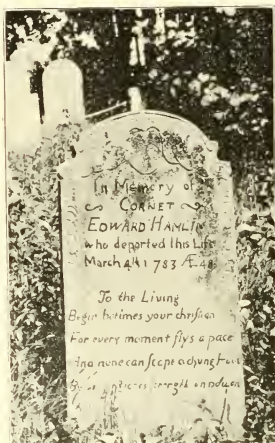 In Memory of
CORNET
EDWARD HAMLIN
who departed this Life
March 4th 1783 Æ 48
To the Living
Begin betimes your christian
For every moment flys a pace
And none can scape a dying